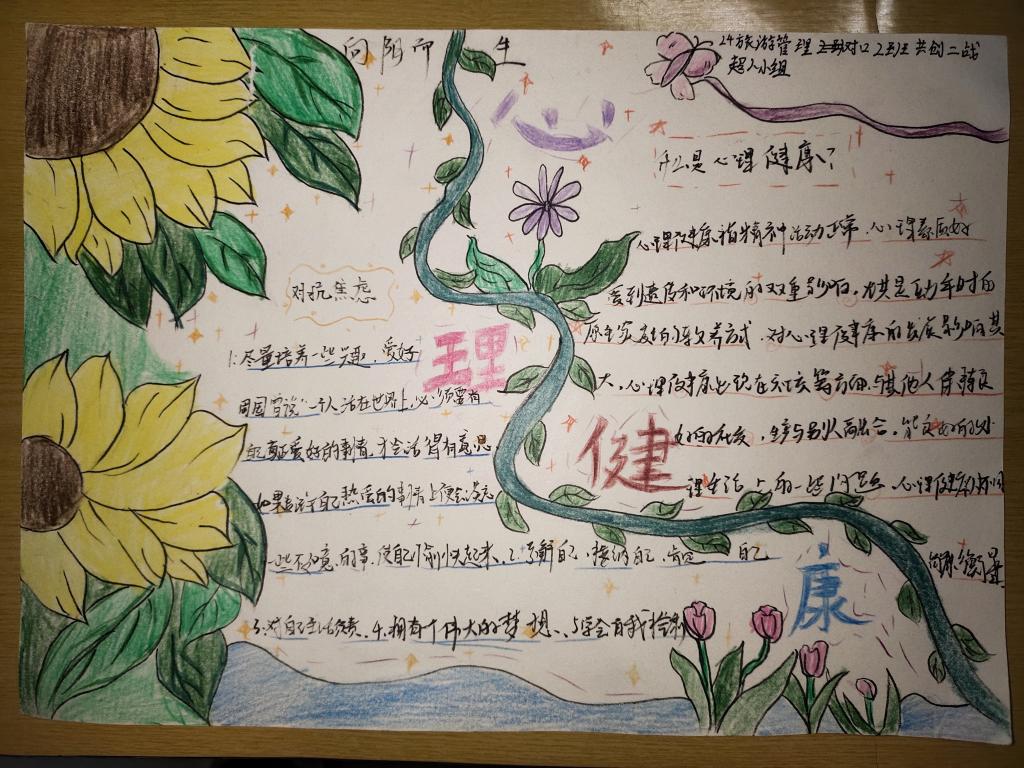 向阳而生
24旅游管理对口2班共创二战
超人小组
心理健康
什么是心理健康?
心理健康指精神活动正常、心理素质好
受到遗传和环境的双重影响，尤其是幼年时的
原生家庭的教养方式，对心理健康的发展影响甚
大，心理健康出现在社交等方面，与其他人保持良
好的社交，能良好的处
理生活上的一些问题，心理健康
衡量
对抗焦虑
1.尽量培养一些兴趣、爱好
周国平说"一个人活在世界上，必须要有
自己真正爱好的事情，才会活得有意思
如果在自己热爱的事情上便会忘
一些不如意的事，使自己愉快起来、2.了解自己，接纳自己，肯定自己
3.对自己生活负责、4.拥有个伟大的梦想、5学会自我